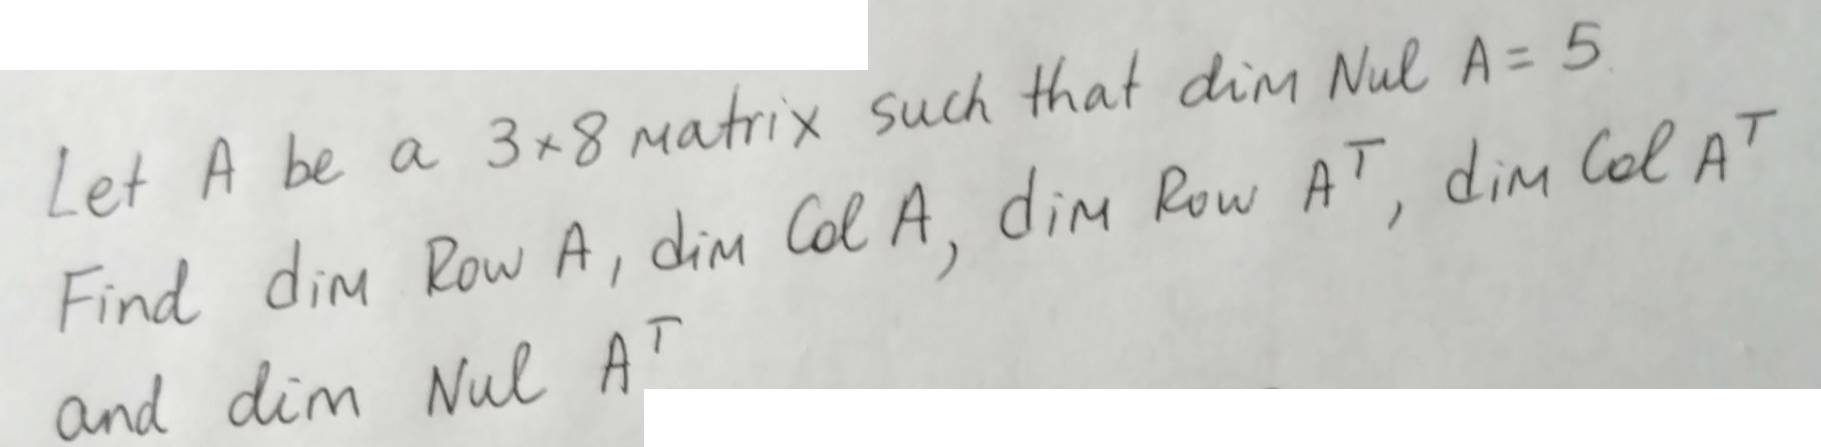 Let A be a 3×8 matrix such that dim Nul A = 5.
Find dim Row A, dim Col A, dim Row Aᵀ, dim Col Aᵀ
and dim Nul Aᵀ